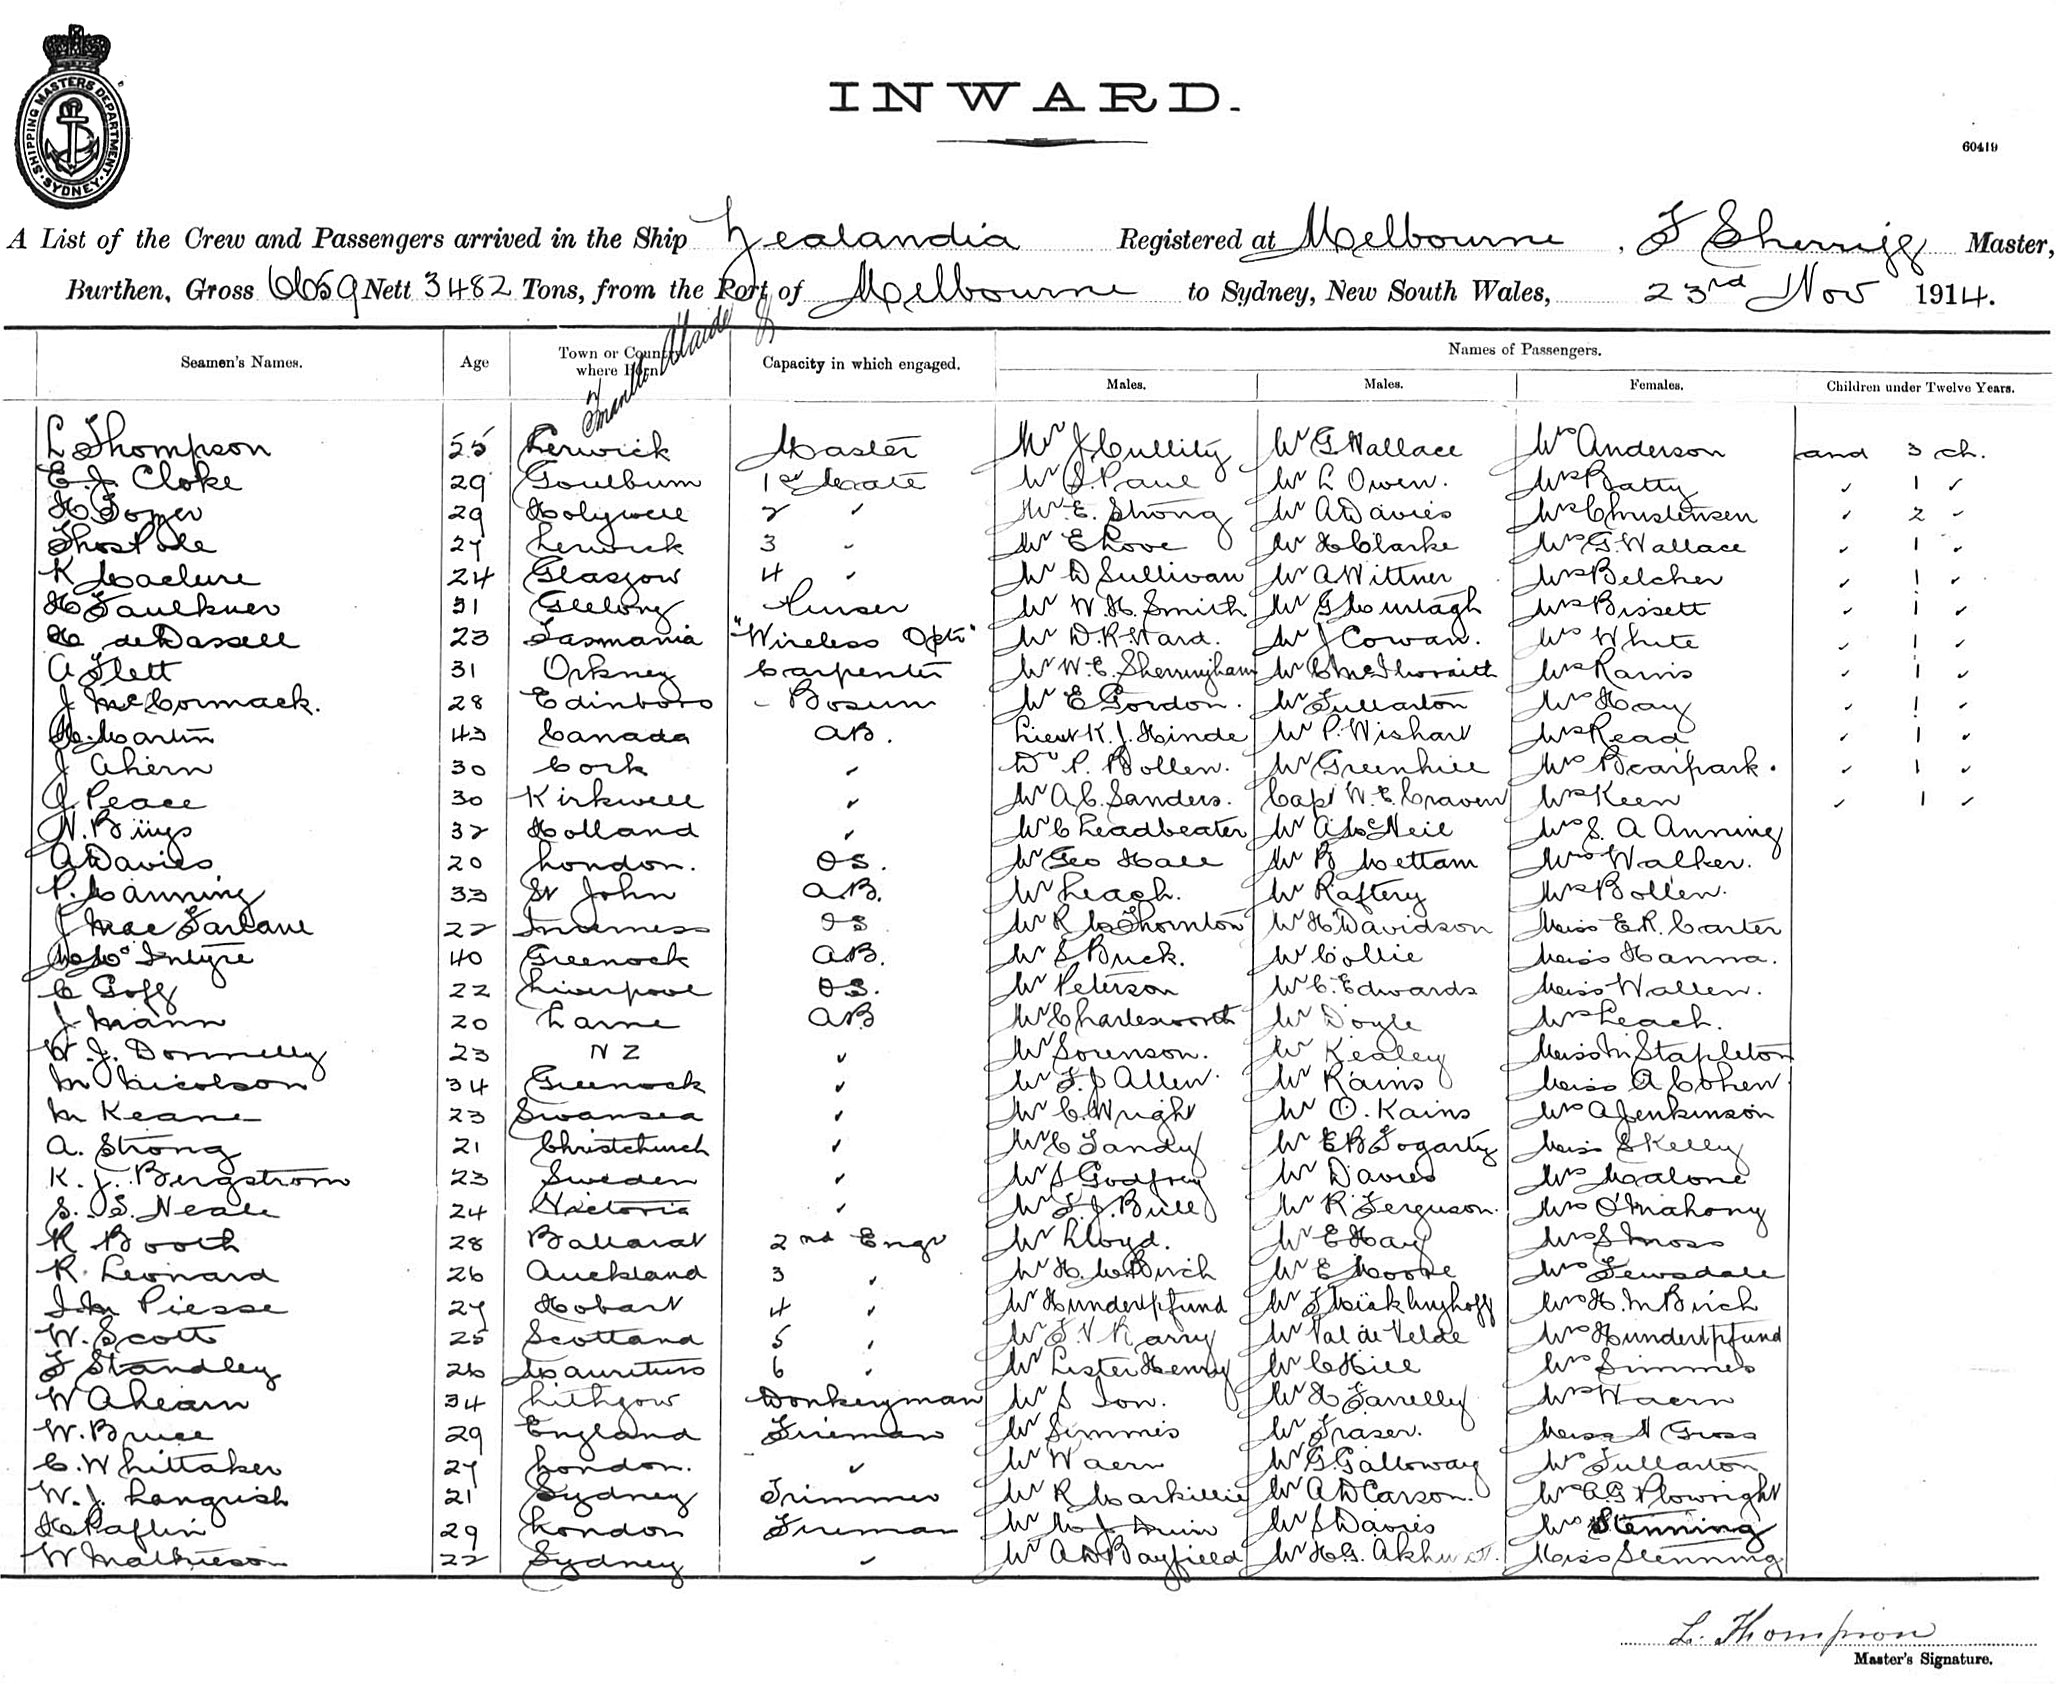 SHIPPING MASTERS DEPARTMENT · SYDNEY ·
INWARD.
60419
A List of the Crew and Passengers arrived in the Ship Zealandia Registered at Melbourne, F Sherrigg Master,
Burthen, Gross 6659 Nett 3482 Tons, from the Port of Melbourne to Sydney, New South Wales, 23rd Nov 1914.
Seamen's Names. Age Town or Country where Born Capacity in which engaged. Names of Passengers.
Males. Males. Females. Children under Twelve Years.
L Thompson 55 Lerwick Master Mr J Cullity Mr G Wallace Mrs Anderson and 3 ch.
E. J. Cloke 29 Goulburn 1st Mate Mr S. Paul Mr L Owen. Mrs Batty " 1 "
29 Holywell 2 " Mr E. Strong Mr A Davies Mrs Christensen " 2 "
Thos Pole 27 Lerwick 3 " Mr E Love Mr H Clarke Mrs G. Wallace " 1 "
K Maclure 24 Glasgow 4 " Mr D Sullivan Mr A Wittner Mrs Belcher " 1 "
H Faulkner 31 Geelong Purser Mr W. H. Smith Mr G Murtagh Mrs Bissett " 1 "
H de Dassell 23 Tasmania "Wireless Optr" Mr D. R. Ward. Mr J Cowan. Mrs White " 1 "
A Flett 31 Orkney Carpenter Mr W. E. Sherringham Mr C McIlwraith Mrs Rains " 1 "
J McCormack. 28 Edinboro - Bosun Mr E Gordon. Mr Fullarton Mrs Hay " 1 "
H. Martin 43 Canada AB. Lieut K. J. Hinde Mr P. Wishart Mrs Read " 1 "
J Ahern 30 Cork " Dr P. Bollen. Mr Greenhill Mrs Bearpark. " 1 "
J. Peace 30 Kirkwell " Mr A. C. Sanders. Capt W. E. Craven Mrs Keen " 1 "
N. Büys 32 Holland " Mr C Leadbeater Mr A McNeil Mrs S. A Anning
A Davies 20 London. OS. Mr Geo Hall Mr B Mettam Mrs Walker.
P. Manning 33 St John AB. Mr Leach. Mr Raftery Mrs Bollen.
J MacFarlane 22 Inverness OS Mr R M Thornton Mr H Davidson Miss E. R. Carter
M McIntyre 40 Greenock AB. Mr S Buck. Mr Collie Miss Hanna.
C Goff 22 Liverpool OS. Mr Peterson Mr C. Edwards Miss Wallen.
J Mann 20 Larne AB Mr Charlesworth Mr Doyle Mrs Leach.
W. J. Donnelly 23 N Z " Mr Sorenson. Mr Kealey Miss M Stapleton
M Nicolson 34 Greenock " Mr F. J Allen. Mr Rains Miss A Cohen
M Keane 23 Swansea " Mr C. Wright Mr O. Kains Mrs A Jenkinson
A. Strong 21 Christchurch " Mr C Tandy Mr E B Fogarty Miss S Kelly
K. J. Bergstrom 23 Sweden " Mr S Godfrey Mr Davies Mrs Malone
S. S. Neale 24 Victoria " Mr F. J. Bull Mr R Ferguson. Mrs O'Mahony
R Booth 28 Ballarat 2nd Engr Mr Lloyd. Mr E Hay Mrs S Moss
R. Leonard 26 Auckland 3 " Mr H. M Birch Mr E Moore Mrs Tewsdale
Piesse 27 Hobart 4 " Mr Hundertpfund Mr Mrs H. M Birch
W. Scott 25 Scotland 5 " Mr F. V Karry Mr Val de Velde Mrs Hundertpfund
F Standley 26 Mauritius 6 " Mr Lister Henry Mr C Hill Mrs Simmes
W Ahearn 34 Lithgow Donkeyman Mr S Ion. Mr H Farrelly Mrs Waern
W. Bruce 29 England Fireman Mr Simmes Mr Fraser. Miss N Gross
C. Whittaker 27 London. " Mr Waern Mr G. Galloway Mrs Fullarton
W. J. Langrish 21 Sydney Trimmer Mr R Markillie Mr A D Carson. Mrs A. G Plowright
H Paflin 29 London Fireman Mr M J Muir Mr S Davies Mrs Stenning
W Mathieson 22 Sydney " Mr A D Bayfield Mr H. G. Akhurst. Miss Stenning
L. Thompson
Master's Signature.